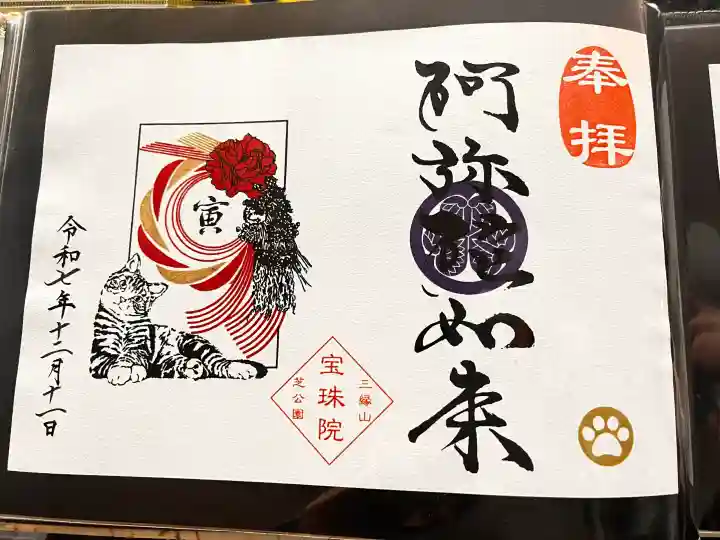 奉拝
阿弥陀如来
寅
三縁山
宝珠院
芝公園
令和七年十二月十一日